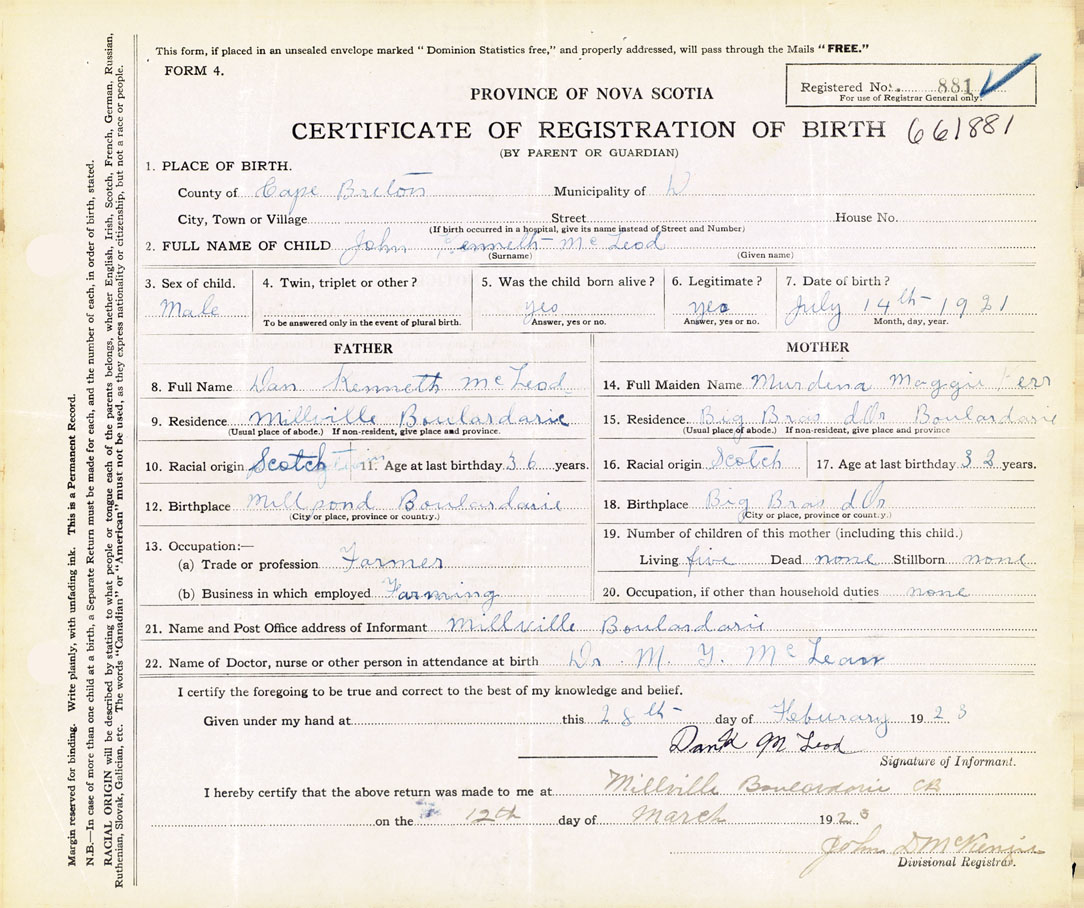 This form, if placed in an unsealed envelope marked " Dominion Statistics free," and properly addressed, will pass through the Mails "FREE."
FORM 4.
Registered No. 881
For use of Registrar General only.
PROVINCE OF NOVA SCOTIA
CERTIFICATE OF REGISTRATION OF BIRTH 661881
(BY PARENT OR GUARDIAN)
1. PLACE OF BIRTH.
County of Cape Breton Municipality of
City, Town or Village Street House No.
(If birth occurred in a hospital, give its name instead of Street and Number)
2. FULL NAME OF CHILD John Kenneth McLeod
(Surname) (Given name)
3. Sex of child. 4. Twin, triplet or other? 5. Was the child born alive? 6. Legitimate? 7. Date of birth?
Male yes yes July 14th 1921
To be answered only in the event of plural birth. Answer, yes or no. Answer, yes or no. Month, day, year.
FATHER MOTHER
8. Full Name Dan Kenneth McLeod
9. Residence Millville Boulardarie
(Usual place of abode.) If non-resident, give place and province.
10. Racial origin Scotch 11. Age at last birthday 36 years.
12. Birthplace Millpond Boulardarie
(City or place, province or country.)
13. Occupation:—
(a) Trade or profession Farmer
(b) Business in which employed Farming
14. Full Maiden Name Murdena Maggie Kerr
15. Residence Big Bras d'Or Boulardarie
(Usual place of abode.) If non-resident, give place and province
16. Racial origin Scotch 17. Age at last birthday 32 years.
18. Birthplace Big Bras d'Or
(City or place, province or country.)
19. Number of children of this mother (including this child.)
Living five Dead none Stillborn none
20. Occupation, if other than household duties none
21. Name and Post Office address of Informant Millville Boulardarie
22. Name of Doctor, nurse or other person in attendance at birth Dr M. Y. McLean
I certify the foregoing to be true and correct to the best of my knowledge and belief.
Given under my hand at this 28th day of Feburary 1923
Dan K McLeod
Signature of Informant.
I hereby certify that the above return was made to me at Millville Boulardarie CB
on the 12th day of March 1923
John D McKenzie
Divisional Registrar.
Margin reserved for binding. Write plainly, with unfading ink. This is a Permanent Record.
N.B.—In case of more than one child at a birth, a Separate Return must be made for each, and the number of each, in order of birth, stated.
RACIAL ORIGIN will be described by stating to what people or tongue each of the parents belongs, whether English, Irish, Scotch, French, German, Russian,
Ruthenian, Slovak, Galician, etc. The words "Canadian" or "American" must not be used, as they express nationality or citizenship, but not a race or people.